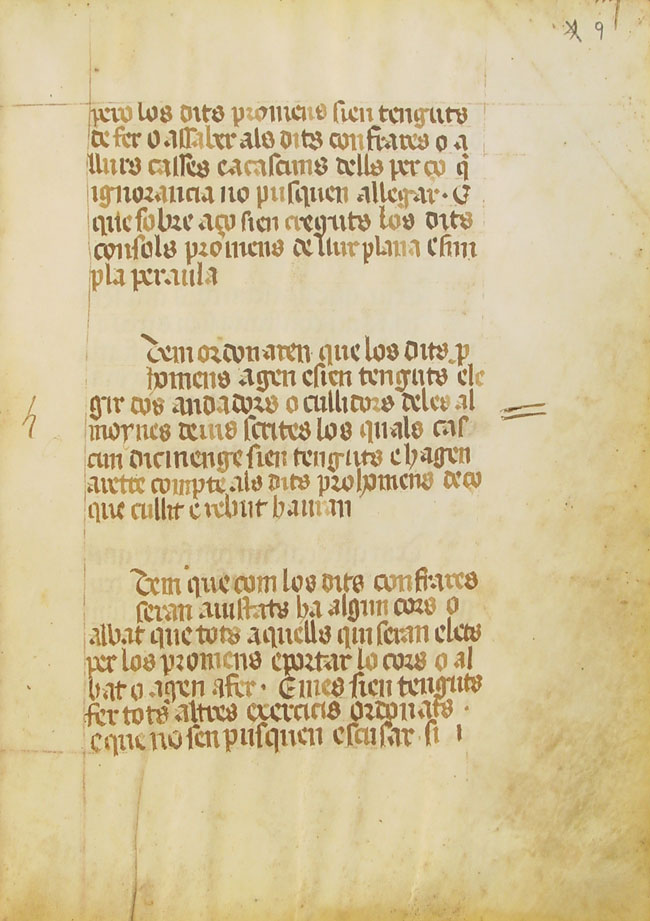 9
pero los dits promens sien tenguts
de fer o assaber als dits confrares o a
llurs casses e a cascuns dells per ço q̄
ignorancia no pusquen allegar · E
que sobre aço sien creguts los dits
consols promens de llur plana e sim
pla peraula
Jtem ordonaren que los dits p
homens agen e sien tenguts ele
gir dos andadors o cullidors deles al
moynes deius scrites los quals cas
cun dicmenge sien tenguts e hagen
arette compte als dits prohomens de ço
que cullit e rebut hauran
Jtem que com los dits confrares
seran aiustats ha algun cors o
albat que tots aquells qui seran elets
per los promens e portar lo cors o al
bat o agen afer · E mes sien tenguts
fer tots altres exercicis ordonats ·
e que no sen pusquen escusar si i